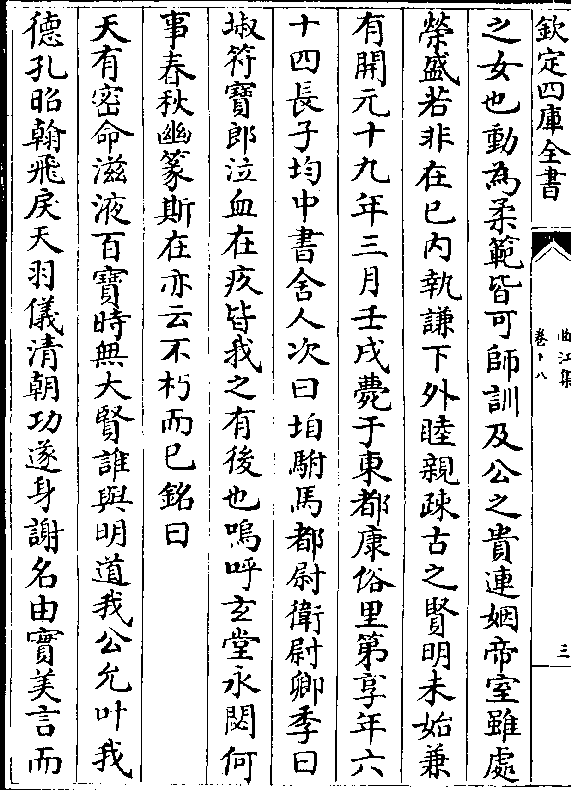 欽定四庫全書
曲江集
卷十八
三
之女也動為柔範皆可師訓及公之貴連姻帝室雖處
榮盛若非在已内執謙下外睦親疎古之賢明未始兼
有開元十九年三月壬戌薨于東都康俗里第享年六
十四長子均中書舍人次曰垍駙馬都尉衛尉卿季曰
埱符寶郎泣血在疚皆我之有後也嗚呼玄堂永閟何
事春秋幽篆斯在亦云不朽而已銘曰
天有密命滋液百寶時無大賢誰與明道我公允叶我
德孔昭翰飛戾天羽儀清朝功遂身謝名由實美言而